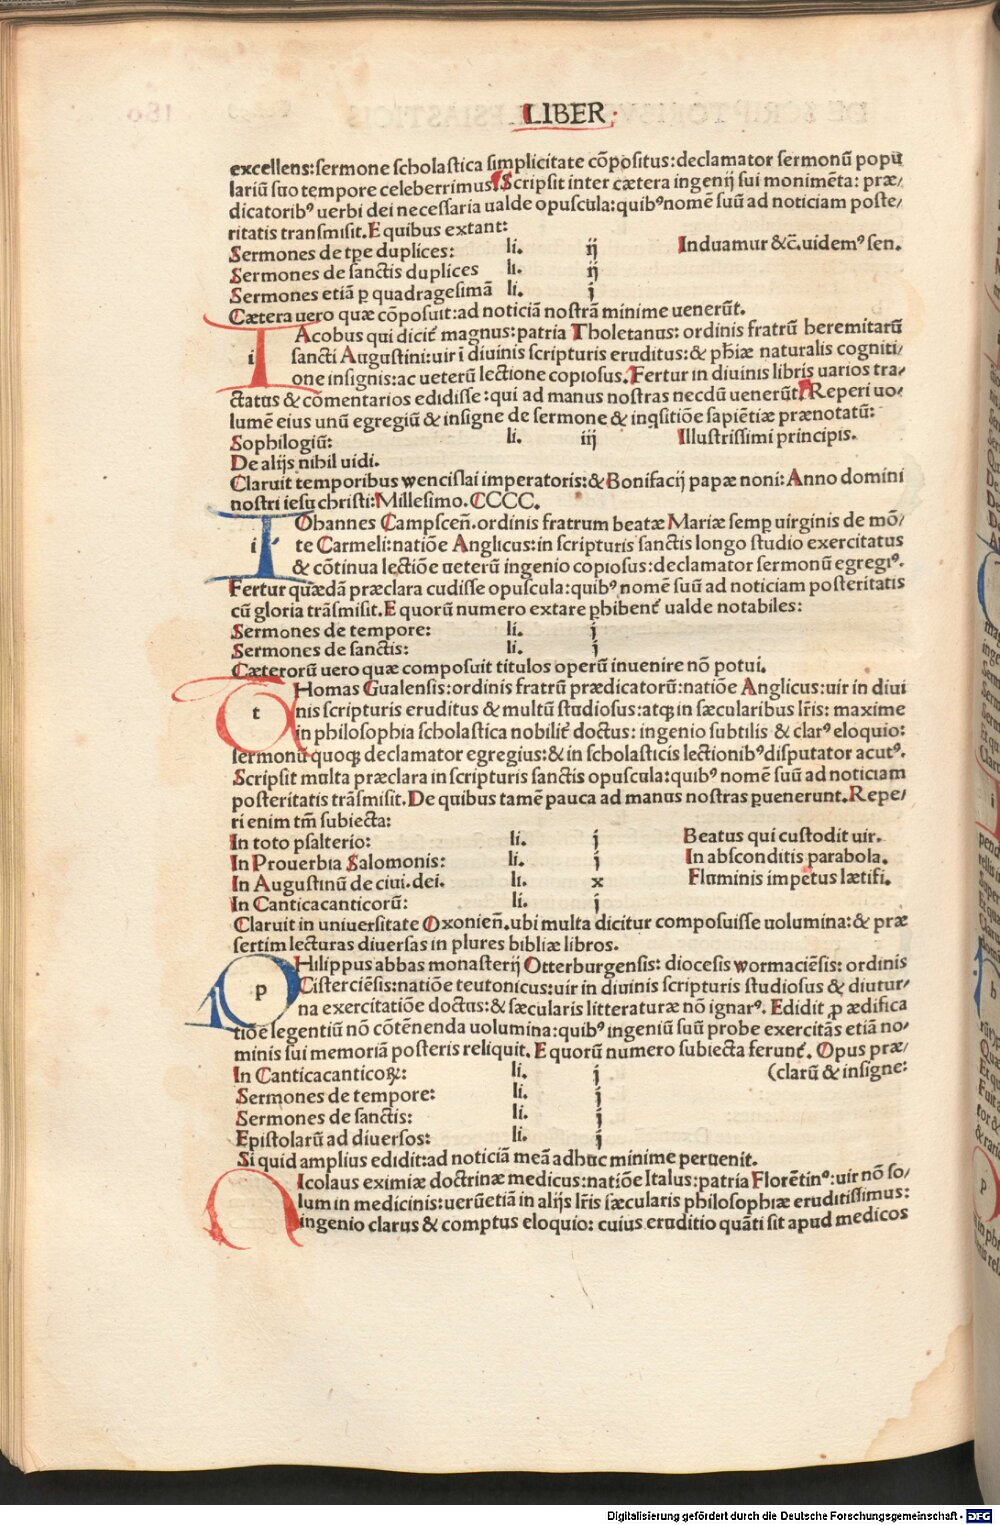 LIBER
excellens:sermone scholastica simplicitate cōpositus:declamator sermonū popu
lariū suo tempore celeberrimus. Scripsit inter cætera ingenij sui monimēta: præ/
dicatoribꝰ uerbi dei necessaria ualde opuscula:quibꝰ nomē suū ad noticiam poste/
ritatis transmisit. E quibus extant:
Sermones de tꝑe duplices: li. ij Induamur &c̄. uidemꝰ sen.
Sermones de sanctis duplices li. ij
Sermones etiā ꝑ quadragesimā li. j
Cætera uero quæ cōposuit:ad noticiā nostrā minime uenerūt.
IAcobus qui dicit᷑ magnus:patria Tholetanus: ordinis fratrū heremitarū
i sancti Augustini:uir ī diuinis scripturis eruditus:& ph̄iæ naturalis cogniti/
one insignis:ac ueterū lectione copiosus. Fertur in diuinis libris uarios tra/
ctatus & cōmentarios edidisse:qui ad manus nostras necdū uenerūt. Reperi uo/
lumē eius unū egregiū & insigne de sermone & inq̄sitiōe sapiētiæ prænotatū:
Sophilogiū: li. iij Illustrissimi principis.
De alijs nihil uidi.
Claruit temporibus wencislai imperatoris:& Bonifacij papæ noni: Anno domini
nostri iesu christi: Millesimo. CCCC.
IOhannes Campsceñ. ordinis fratrum beatæ Mariæ semꝑ uirginis de mō/
i te Carmeli:natiōe Anglicus:in scripturis sanctis longo studio exercitatus
& cōtinua lectiōe ueterū ingenio copiosus:declamator sermonū egregiꝰ.
Fertur quædā præclara cudisse opuscula:quibꝰ nomē suū ad noticiam posteritatis
cū gloria trāsmisit. E quorū numero extare ꝑhibent᷑ ualde notabiles:
Sermones de tempore: li. j
Sermones de sanctis: li. j
Cæterorū uero quæ composuit titulos operū inuenire nō potui.
THomas Gualensis:ordinis fratrū prædicatorū:natiōe Anglicus:uir in diui
t nis scripturis eruditus & multū studiosus:atqꝫ in sæcularibus lr̄is: maxime
in philosophia scholastica nobilit᷑ doctus: ingenio subtilis & clarꝰ eloquio:
sermonū quoqꝫ declamator egregius:& in scholasticis lectionibꝰ disputator acutꝰ.
Scripsit multa præclara in scripturis sanctis opuscula:quibꝰ nomē suū ad noticiam
posteritatis trāsmisit. De quibus tamē pauca ad manus nostras ꝑuenerunt. Repe/
ri enim tm̄ subiecta:
In toto psalterio: li. j Beatus qui custodit uir.
In Prouerbia Salomonis: li. j In absconditis parabola.
In Augustinū de ciui. dei. li. x Fluminis impetus lætifi.
In Cantica canticorū: li. j
Claruit in uniuersitate Oxonieñ. ubi multa dicitur composuisse uolumina:& præ
sertim lecturas diuersas in plures bibliæ libros.
PHilippus abbas monasterij Otterburgensis: diocesis wormaciēsis: ordinis
p Cisterciēsis:natiōe teutonicus:uir in diuinis scripturis studiosus & diutur/
na exercitatiōe doctus:& sæcularis litteraturæ nō ignarꝰ. Edidit ꝓ ædifica
tiōe legentiū nō cōtēnenda uolumina:quibꝰ ingeniū suū probe exercitās etiā no/
minis sui memoriā posteris reliquit. E quorū numero subiecta ferunt᷑. Opus præ/
In Cantica canticoꝝ: li. j (clarū & insigne:
Sermones de tempore: li. j
Sermones de sanctis: li. j
Epistolarū ad diuersos: li. j
Si quid amplius edidit:ad noticiā meā adhuc minime peruenit.
NIcolaus eximiæ doctrinæ medicus:natiōe Italus:patria Florētinꝰ:uir nō so/
lum in medicinis:uerūetiā in alijs lr̄is sæcularis philosophiæ eruditissimus:
ingenio clarus & comptus eloquio: cuius eruditio quāti sit apud medicos
Digitalisierung gefördert durch die Deutsche Forschungsgemeinschaft - DFG